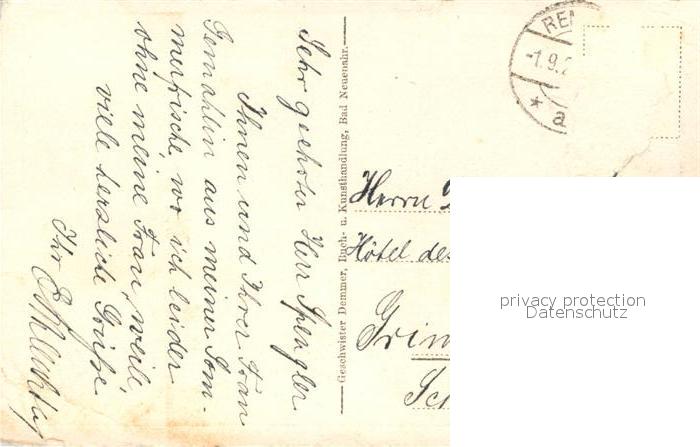 Sehr geehrter Herr Spengler
Ihnen und Ihrer Frau
Gemahlin aus meiner Som-
merfrische, wo ich leider
ohne meine Frau, weile,
viele herzliche Grüße.
Ihr
Geschwister Demmer, Buch- u. Kunsthandlung, Bad Neuenahr.
REM
-1.9.2
* a
Herrn
Hôtel des
Grim
Sc
privacy protection
Datenschutz